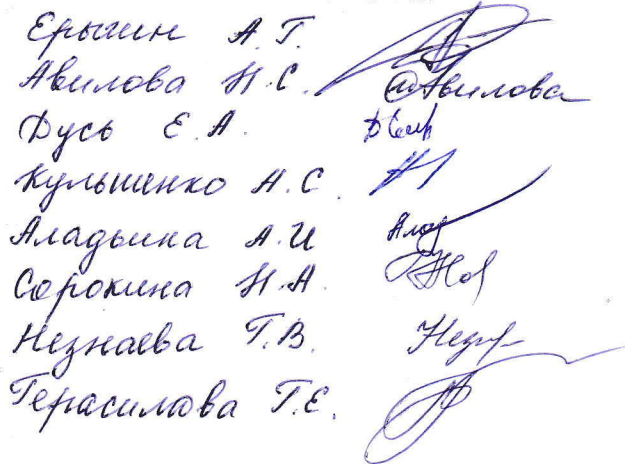 Ерыгин А.Г.
Авилова Н.С. Авилова
Дусь Е.А.
Кульшенко Н.С.
Аладьина А.И
Сорокина Н.А.
Незнаева Г.В.
Герасилова Г.Е.